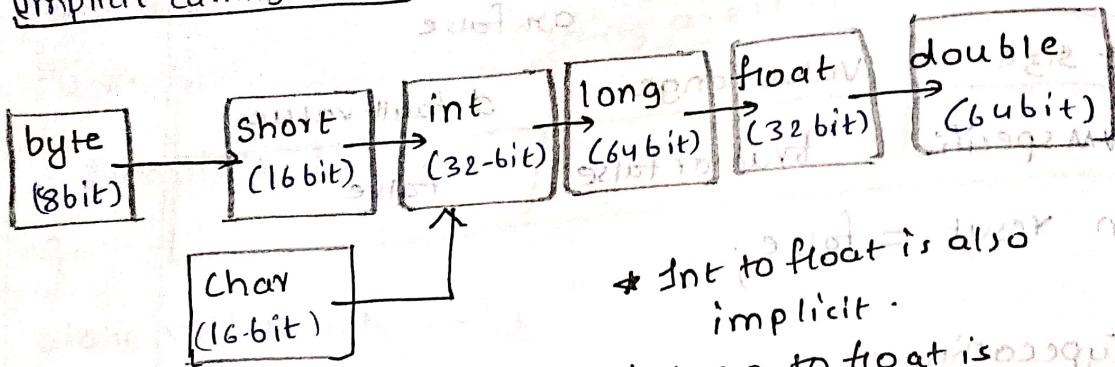 implicit
byte
(8bit)
short
(16bit)
int
(32-bit)
long
(64bit)
float
(32bit)
double
(64bit)
Char
(16-bit)
* Int to float is also
implicit.
to float is